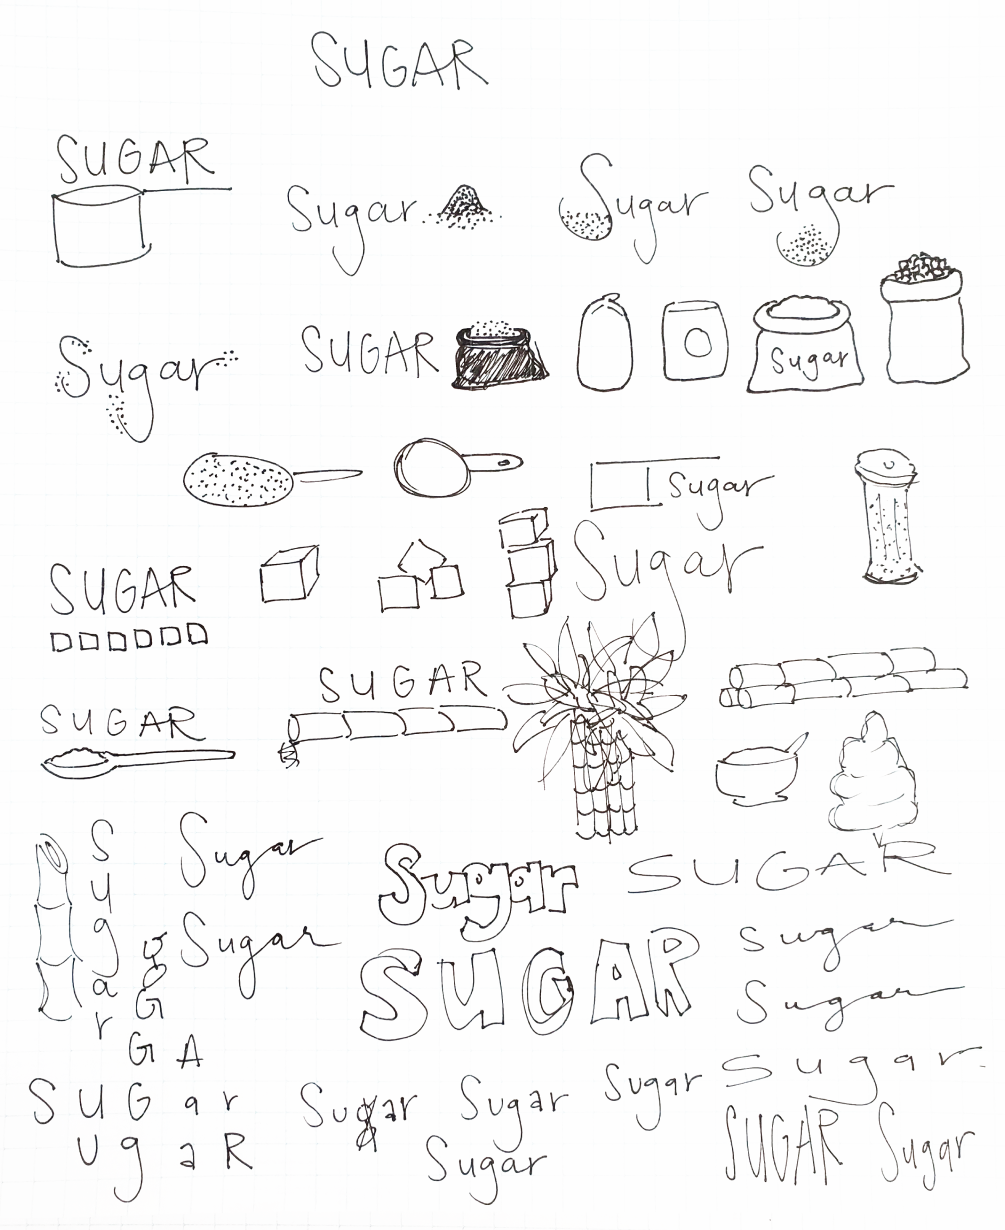 SUGAR
SUGAR
Sugar
Sugar
Sugar
Sugar
SUGAR
Sugar
Sugar
SUGAR
Sugar
SUGAR
SUGAR
S
u
g
a
r
Sugar
g Sugar
G
G A
Sugar
SUGAR
SUGAR
sugar
Sugar
Sugar
S U G a r
u g a R
Sugar
Sugar
Sugar
Sugar
SUGAR
Sugar